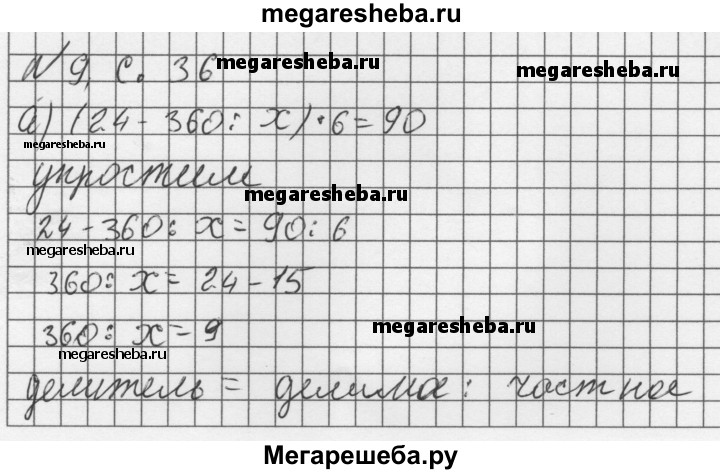 megaresheba.ru
N 9, с. 36 megaresheba.ru megaresheba.ru
а) (24 - 360 : х) • 6 = 90
megaresheba.ru
упростим
megaresheba.ru
24 - 360 : х = 90 : 6
megaresheba.ru
360 : х = 24 - 15
360 : х = 9 megaresheba.ru
megaresheba.ru
делитель = делимое : частное
Мегарешеба.ру